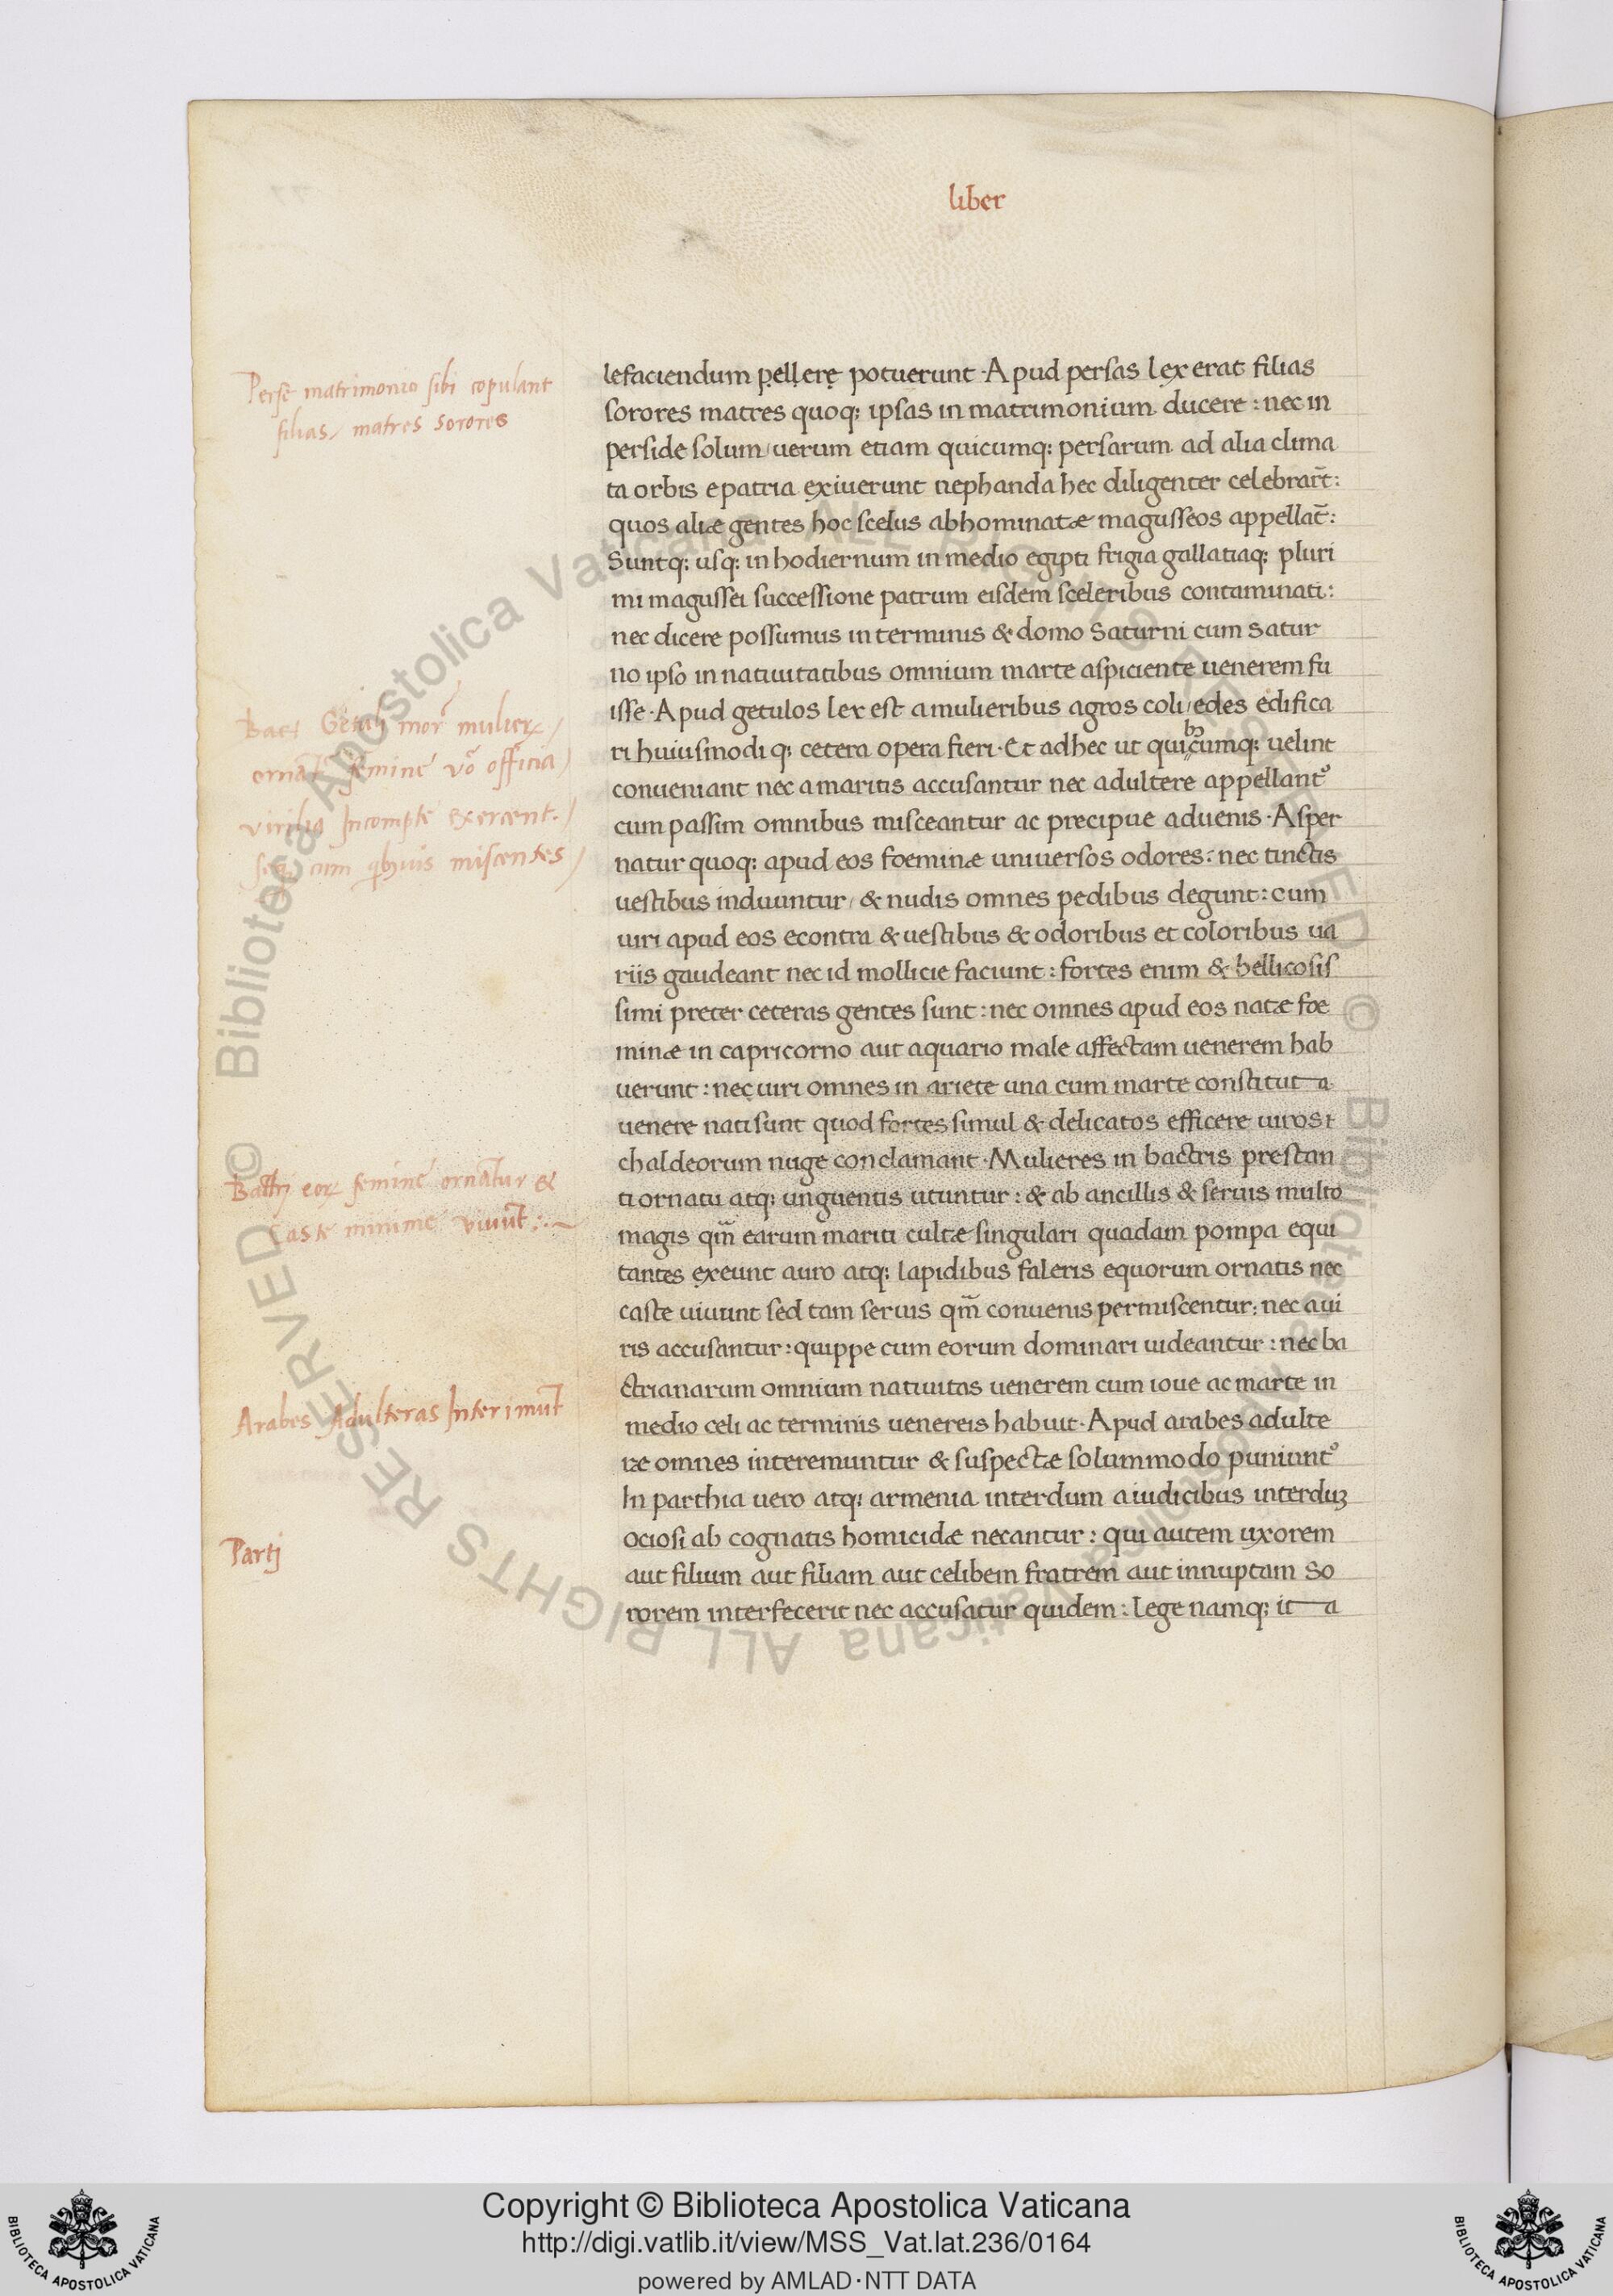 liber
Perse matrimonio sibi copulant
filias, matres sorores
lefaciendum pellere potuerunt · Apud persas lex erat filias
sorores matres quoq; ipsas in matrimonium ducere : nec in
perside solum / uerum etiam quicumq; persarum ad alia clima
ta orbis e patria exiuerunt nephanda hec diligenter celebrar̄t :
quos aliæ gentes hoc scelus abhominatæ magusseos appellat̄ :
Suntq; usq; in hodiernum in medio egipti frigia gallatiaq; pluri
mi magussei successione patrum eisdem sceleribus contaminati :
nec dicere possumus in terminis & domo Saturni cum Satur
no ipso in natiuitatibus omnium marte aspiciente uenerem fu
isse · Apud getulos lex est a mulieribus agros coli / edes edifica
ri huiusmodi q; cetera opera fieri · Et adhec ut quicumq; uelint
conueniant nec a maritis accusantur nec adultere appellant᷒
cum passim omnibus misceantur ac precipue aduenis · Asper
natur quoq; apud eos foeminæ uniuersos odores : nec tinctis
uestibus induuntur / & nudis omnes pedibus degunt : cum
uiri apud eos econtra & uestibus & odoribus et coloribus ua
riis gaudeant nec id mollicie faciunt : fortes enim & bellicosis
simi preter ceteras gentes sunt : nec omnes apud eos natæ foe
minæ in capricorno aut aquario male affectam uenerem hab
uerunt : nec uiri omnes in ariete una cum marte constituta
uenere nati sunt quod fortes simul & delicatos efficere uiros
chaldeorum nuge conclamant · Mulieres in bactris prestan
ti ornatu atq; unguentis utuntur : & ab ancillis & seruis multo
magis qm̄ earum mariti cultæ singulari quadam pompa equi
tantes exeunt auro atq; lapidibus faleris equorum ornatis nec
caste uiuunt sed tam seruis qm̄ conuenis permiscentur : nec a ui
ris accusantur : quippe cum eorum dominari uideantur : nec ba
ctrianarum omnium natiuitas uenerem cum ioue ac marte in
medio celi ac terminis uenereis habuit · Apud arabes adulte
ræ omnes interemuntur & suspectæ solummodo puniunt᷒
In parthia uero atq; armenia interdum a iudicibus interduʒ
ociosi ab cognatis homicidæ necantur : qui autem uxorem
aut filium aut filiam aut celibem fratrem aut innuptam so
rorem interfecerit nec accusatur quidem : lege namq; ita
Getuli mor̄ mulieꝝ
femine vō officia
virilia Incompte exercent.
cum qbuis miscentes
Bactrj eoꝝ femine ornātur &
caste minime viuūt :·~
Arabes Adulteras Interimūt
Partj
© Biblioteca Apostolica Vaticana ALL RIGHTS RESERVED © Biblioteca Apostolica Vaticana ALL RIGHTS RESERVED
Copyright © Biblioteca Apostolica Vaticana
http://digi.vatlib.it/view/MSS_Vat.lat.236/0164
powered by AMLAD·NTT DATA
BIBLIOTECA APOSTOLICA VATICANA
BIBLIOTECA APOSTOLICA VATICANA